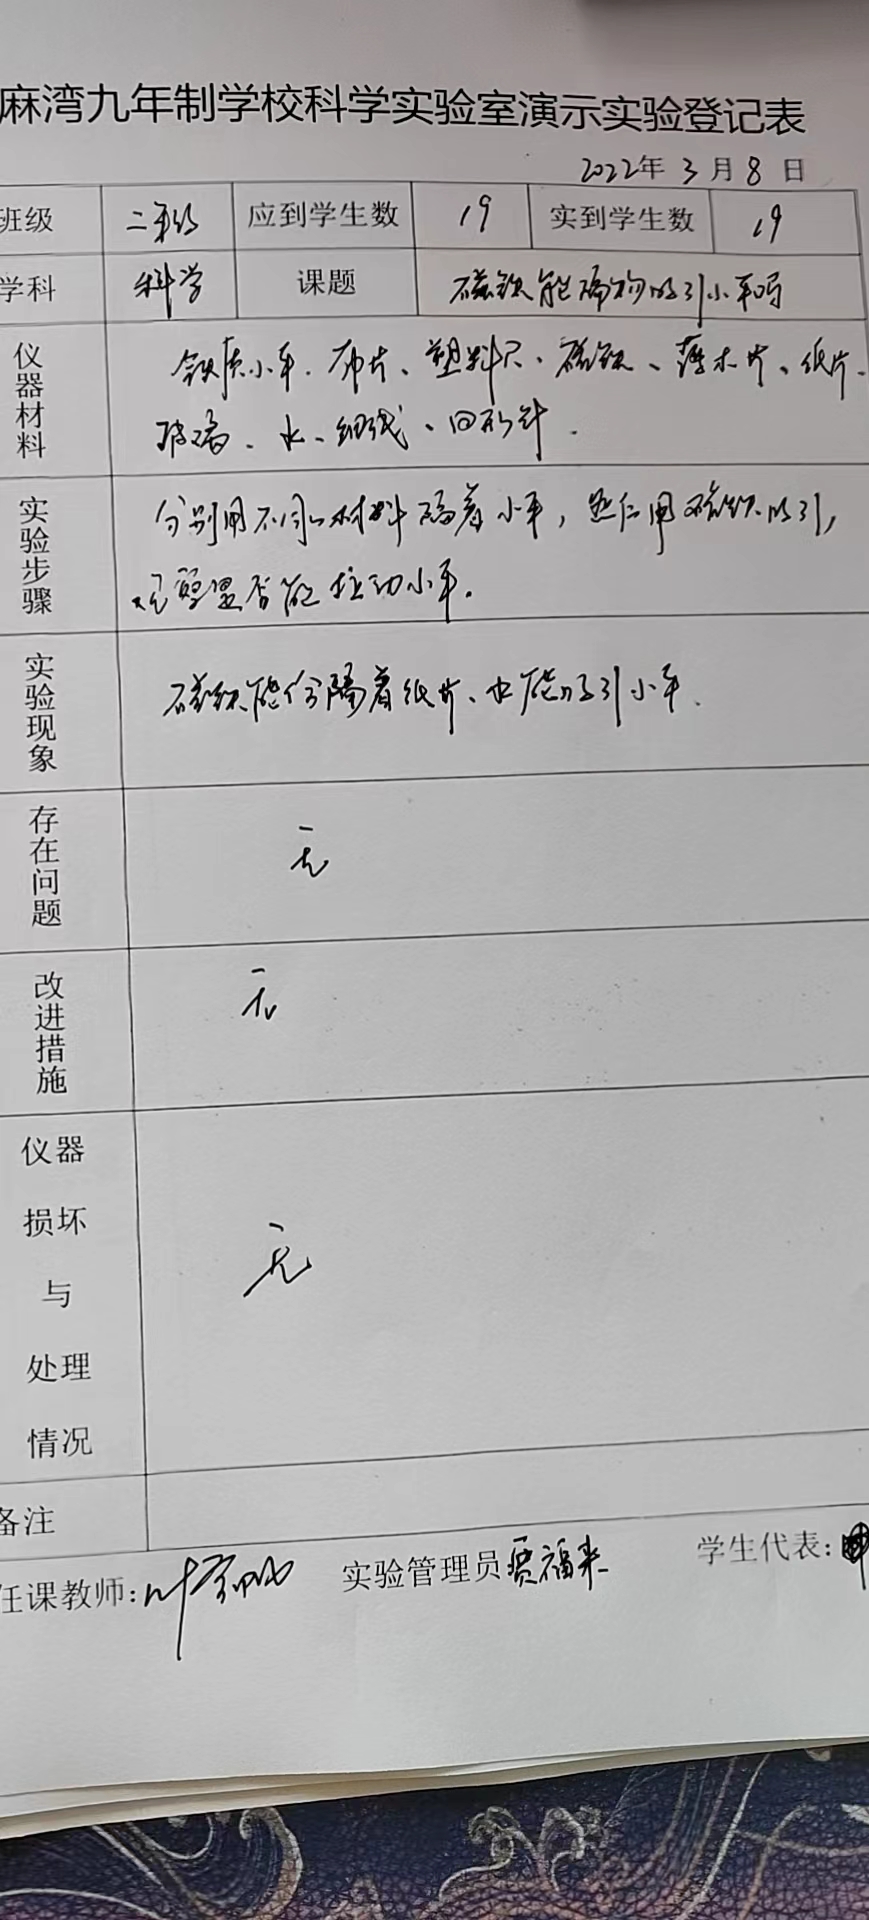 麻湾九年制学校科学实验室演示实验登记表
2022年 3 月 8 日
班级 二年级 应到学生数 19 实到学生数 19
学科 科学 课题 磁铁能隔物吸引小车吗
仪器材料 铁质小车、布片、塑料尺、磁铁、薄木片、纸片、
玻璃、水、细线、回形针.
实验步骤 分别用不同材料隔着小车，然后用磁铁吸引，
观察是否能拉动小车.
实验现象 磁铁能隔着纸片、水能吸引小车.
存在问题 无
改进措施 无
仪器
损坏
与 无
处理
情况
备注
任课教师: 实验管理员 贾福来 学生代表: